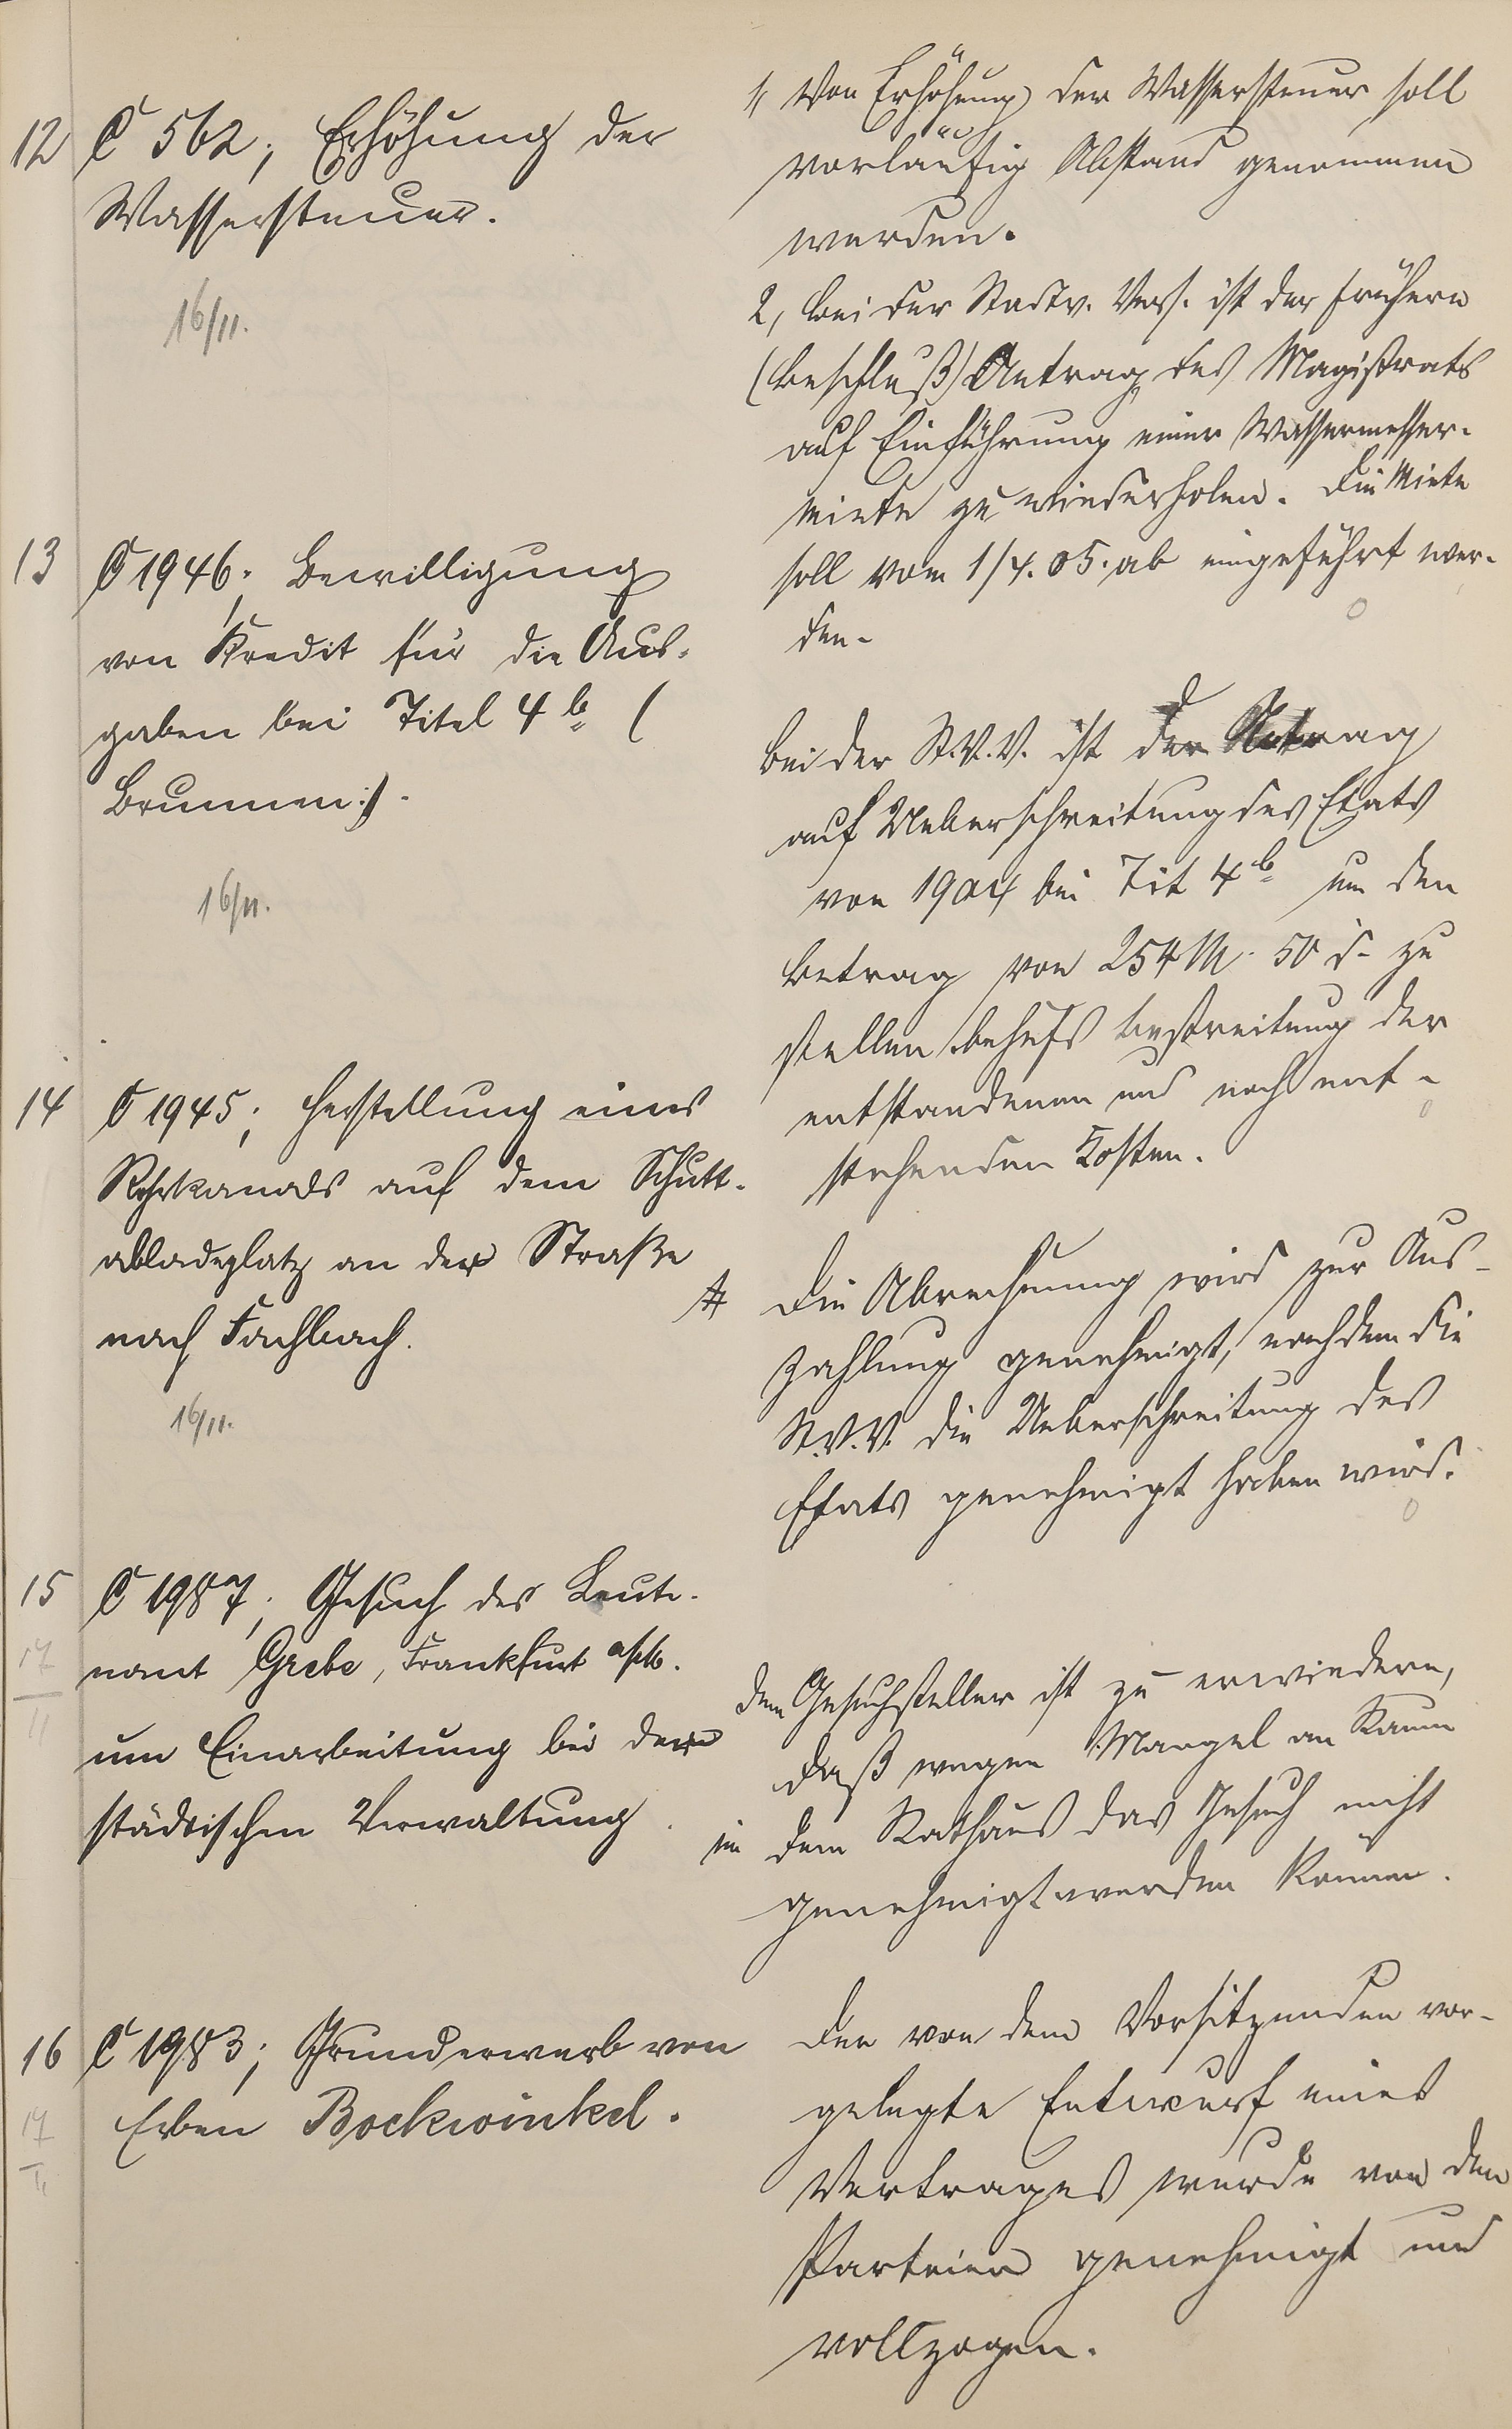 12
C 562; Erhöhung der
Wassersteuer.
16/11.
1, Von Erhöhung der Wassersteuer soll
vorläufig Abstand genommen
werden.
2, bei der Stadtv. Vers. ist der frühere
(Beschluß) Antrag des Magistrats
auf Einführung einer Wassermesser-
miete zu wiederholen. Die Miete
soll vom 1/4. 05. ab eingeführt wer-
den.
13
C 1946; Bewilligung
von Kredit für die Aus-
gaben bei Titel 4b (
Brunnen:).
16/11.
bei der St.V.V. ist der Antrag
auf Ueberschreitung des Etats
von 1904 bei Tit 4b um den
Betrag von 254 M. 50 d. zu
stellen behufs Bestreitung der
entstandenen und noch ent-
stehenden Kosten.
14
C 1945; Herstellung eines
Rohrkanals auf dem Schutt-
abladeplatz an der Straße
nach Fachbach.
16/11.
Die Abrechnung wird zur Aus-
zahlung genehmigt, nachdem die
St.V.V. die Ueberschreitung des
Etats genehmigt haben wird.
15
17
11
C 1987; Gesuch des Leut-
nant Grebe, Frankfurt a/M.
um Einarbeitung bei der
städtischen Verwaltung.
dem Gesuchsteller ist zu erwiedern,
daß wegen Mangel an Raum
in dem Rathaus das Gesuch nicht
genehmigt werden könne.
16
17
11
C 1983; Grunderwerb von
Erben Bockwinkel.
Der von dem Vorsitzenden vor-
gelegte Entwurf eines
Vertrages wurde von den
Parteien genehmigt und
vollzogen.